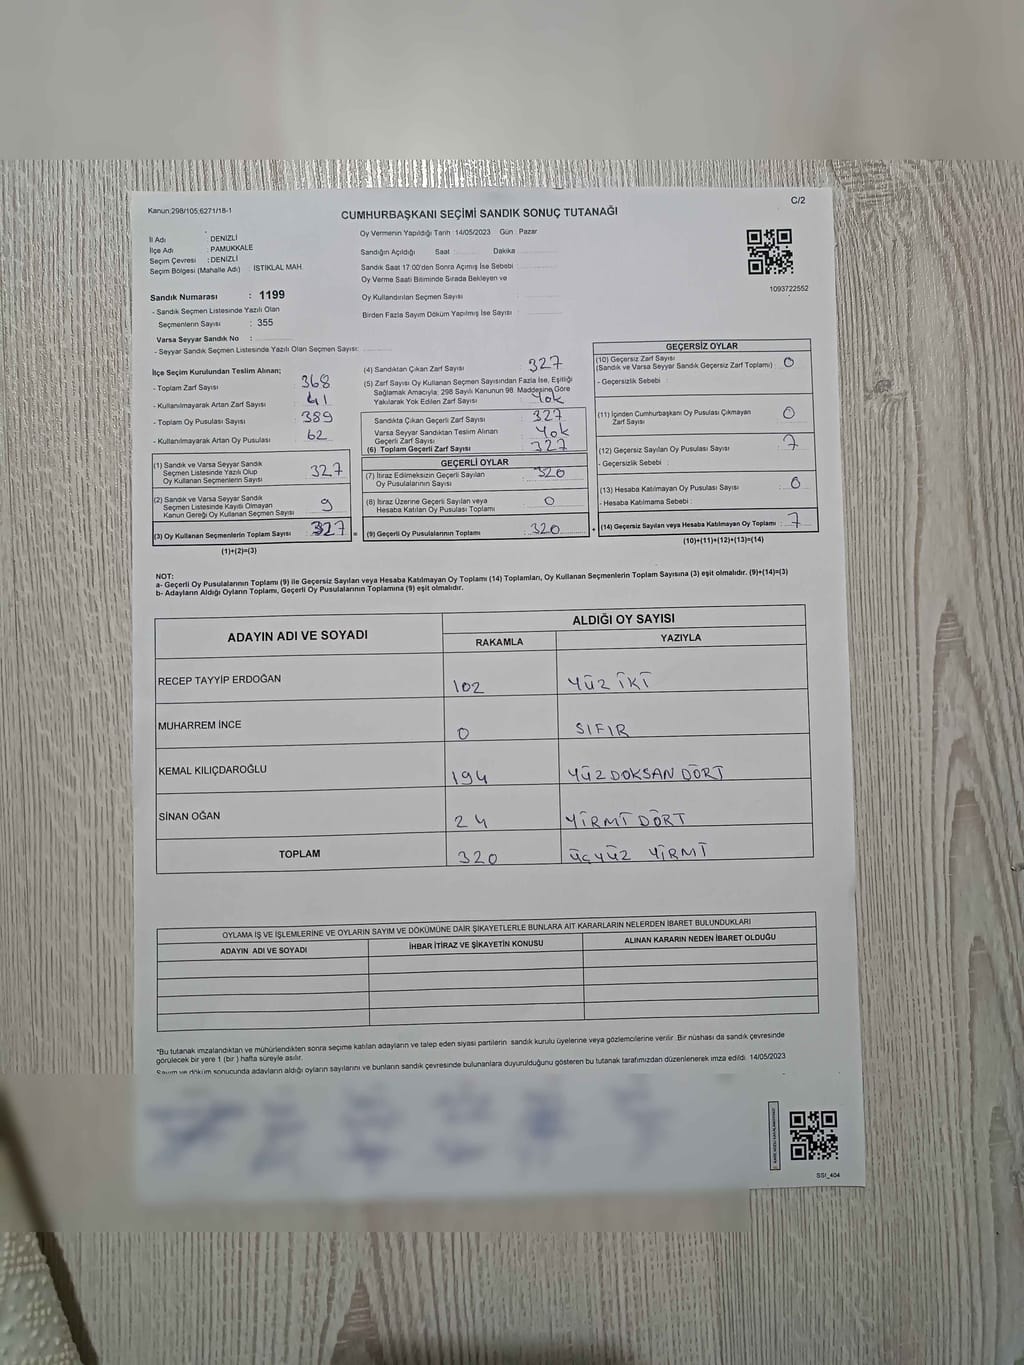 Kanun:298/105;6271/18-1
C/2
CUMHURBAŞKANI SEÇİMİ SANDIK SONUÇ TUTANAĞI
İl Adı : DENİZLİ
İlçe Adı : PAMUKKALE
Seçim Çevresi : DENİZLİ
Seçim Bölgesi (Mahalle Adı) İSTİKLAL MAH.
Sandık Numarası : 1199
- Sandık Seçmen Listesinde Yazılı Olan
Seçmenlerin Sayısı : 355
Varsa Seyyar Sandık No :
- Seyyar Sandık Seçmen Listesinde Yazılı Olan Seçmen Sayısı:
Oy Vermenin Yapıldığı Tarih :14/05/2023 Gün : Pazar
Sandığın Açıldığı Saat Dakika
Sandık Saat 17:00'den Sonra Açımış İse Sebebi
Oy Verme Saati Bitiminde Sırada Bekleyen ve
Oy Kullandırılan Seçmen Sayısı
Birden Fazla Sayım Döküm Yapılmış İse Sayısı
1093722552
İlçe Seçim Kurulundan Teslim Alınan;
- Toplam Zarf Sayısı : 368
- Kullanılmayarak Artan Zarf Sayısı : 41
- Toplam Oy Pusulası Sayısı : 389
- Kullanılmayarak Artan Oy Pusulası : 62
(1) Sandık ve Varsa Seyyar Sandık
Seçmen Listesinde Yazılı Olup
Oy Kullanan Seçmenlerin Sayısı : 327
(2) Sandık ve Varsa Seyyar Sandık
Seçmen Listesinde Kayıtlı Olmayan
Kanun Gereği Oy Kullanan Seçmen Sayısı : 9
(3) Oy Kullanan Seçmenlerin Toplam Sayısı : 327 =
(1)+(2)=(3)
(4) Sandıktan Çıkan Zarf Sayısı : 327
(5) Zarf Sayısı Oy Kullanan Seçmen Sayısından Fazla İse, Eşitliği
Sağlamak Amacıyla; 298 Sayılı Kanunun 98. Maddesine Göre
Yakılarak Yok Edilen Zarf Sayısı : Yok
Sandıkta Çıkan Geçerli Zarf Sayısı : 327
Varsa Seyyar Sandıktan Teslim Alınan
Geçerli Zarf Sayısı : Yok
(6) Toplam Geçerli Zarf Sayısı : 327
GEÇERLİ OYLAR
(7) İtiraz Edimeksizin Geçerli Sayılan : 320
Oy Pusulalarının Sayısı
(8) İtiraz Üzerine Geçerli Sayılan veya
Hesaba Katılan Oy Pusulası Toplamı : 0
(9) Geçerli Oy Pusulalarının Toplamı : 320 +
GEÇERSİZ OYLAR
(10) Geçersiz Zarf Sayısı
(Sandık ve Varsa Seyyar Sandık Geçersiz Zarf Toplamı) : 0
- Geçersizlik Sebebi :
(11) İçinden Cumhurbaşkanı Oy Pusulası Çıkmayan
Zarf Sayısı : 0
(12) Geçersiz Sayılan Oy Pusulası Sayısı : 7
- Geçersizlik Sebebi :
(13) Hesaba Katılmayan Oy Pusulası Sayısı : 0
- Hesaba Katılmama Sebebi :
(14) Geçersiz Sayılan veya Hesaba Katılmayan Oy Toplamı : 7
(10)+(11)+(12)+(13)=(14)
NOT:
a- Geçerli Oy Pusulalarının Toplamı (9) ile Geçersiz Sayılan veya Hesaba Katılmayan Oy Toplamı (14) Toplamları, Oy Kullanan Seçmenlerin Toplam Sayısına (3) eşit olmalıdır. (9)+(14)=(3)
b- Adayların Aldığı Oyların Toplamı, Geçerli Oy Pusulalarının Toplamına (9) eşit olmalıdır.
ADAYIN ADI VE SOYADI
ALDIĞI OY SAYISI
RAKAMLA YAZIYLA
RECEP TAYYİP ERDOĞAN 102 YÜZ İKİ
MUHARREM İNCE 0 SIFIR
KEMAL KILIÇDAROĞLU 194 YÜZ DOKSAN DÖRT
SİNAN OĞAN 24 YİRMİ DÖRT
TOPLAM 320 ÜÇYÜZ YİRMİ
OYLAMA İŞ VE İŞLEMLERİNE VE OYLARIN SAYIM VE DÖKÜMÜNE DAİR ŞİKAYETLERLE BUNLARA AİT KARARLARIN NELERDEN İBARET BULUNDUKLARI
ADAYIN ADI VE SOYADI İHBAR İTİRAZ VE ŞİKAYETİN KONUSU ALINAN KARARIN NEDEN İBARET OLDUĞU
*Bu tutanak imzalandıktan ve mühürlendikten sonra seçime katılan adayların ve talep eden siyasi partilerin sandık kurulu üyelerine veya gözlemcilerine verilir. Bir nüshası da sandık çevresinde
görülecek bir yere 1 (bir ) hafta süreyle asılır.
Sayım ve döküm sonucunda adayların aldığı oyların sayılarını ve bunların sandık çevresinde bulunanlara duyurulduğunu gösteren bu tutanak tarafımızdan düzenlenerek imza edildi. 14/05/2023
SSI_404